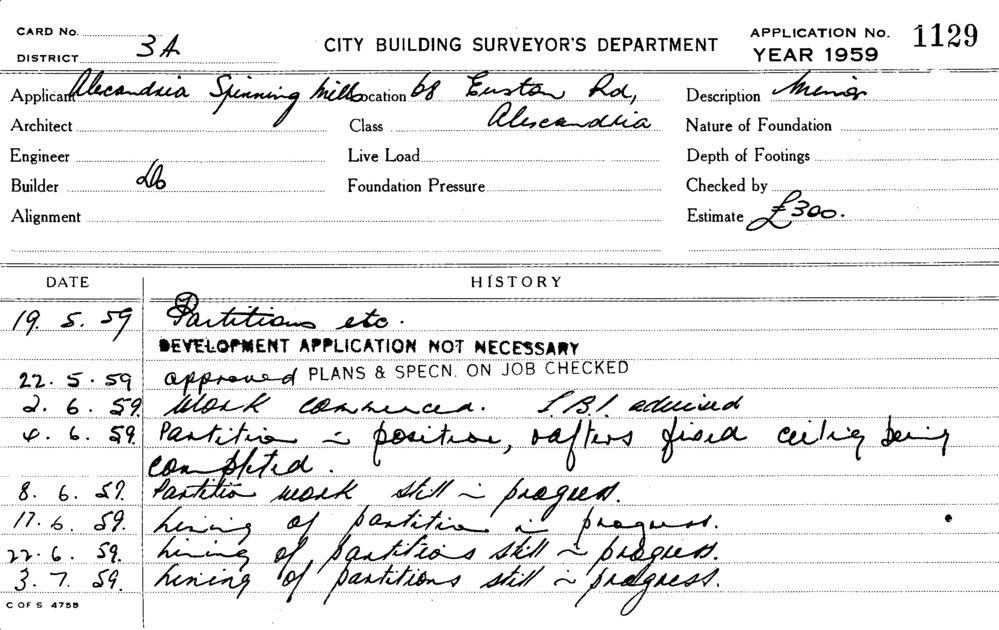 CARD No.
DISTRICT 3A
CITY BUILDING SURVEYOR'S DEPARTMENT
APPLICATION No. 1129
YEAR 1959
Applicant Alexandria Spinning Mills Location 68 Euston Rd, Description Minor
Architect Class Alexandria Nature of Foundation
Engineer Live Load Depth of Footings
Builder Do Foundation Pressure Checked by
Alignment Estimate £300.
DATE HISTORY
19. 5. 59 Partitions etc.
DEVELOPMENT APPLICATION NOT NECESSARY
22. 5. 59 approved PLANS & SPECN. ON JOB CHECKED
2. 6. 59. Work commenced. I.B.I. advised
4. 6. 59. Partition in position, rafters fixed ceiling being
completed.
8. 6. 59. Partition work still in progress.
17. 6. 59. Lining of partition in progress.
22. 6. 59. Lining of partitions still in progress.
3. 7. 59. Lining of partitions still in progress.
C OF S 4755